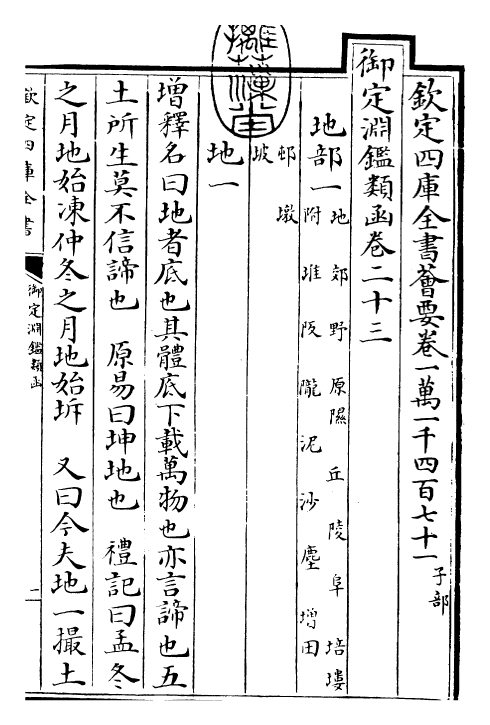 欽定四庫全書薈要卷一萬一千四百七十一 子部
御定淵鑑類函卷二十三
地部一 地 郊 野 原隰 丘 陵 阜 培塿
附 堆 阪 隴 泥 沙 塵 增 田
邨 墩
坡
地一
增釋名曰地者底也其體底下載萬物也亦言諦也五
土所生莫不信諦也 原易曰坤地也 禮記曰孟冬
之月地始凍仲冬之月地始坼 又曰今夫地一撮土
欽定四庫全書
御定淵鑑類函